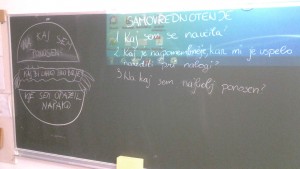 KAJ SEM
PONOSEN
KAJ BI LAHKO
KJE SEM OPAZIL
NAPAKO
SAMOVREDNOTENJE
1 Kaj sem se naučila?
2. Kaj je najpomembnejše, kar mi je uspelo
narediti pri nalogi?
3 Na kaj sem najbolj ponosen?